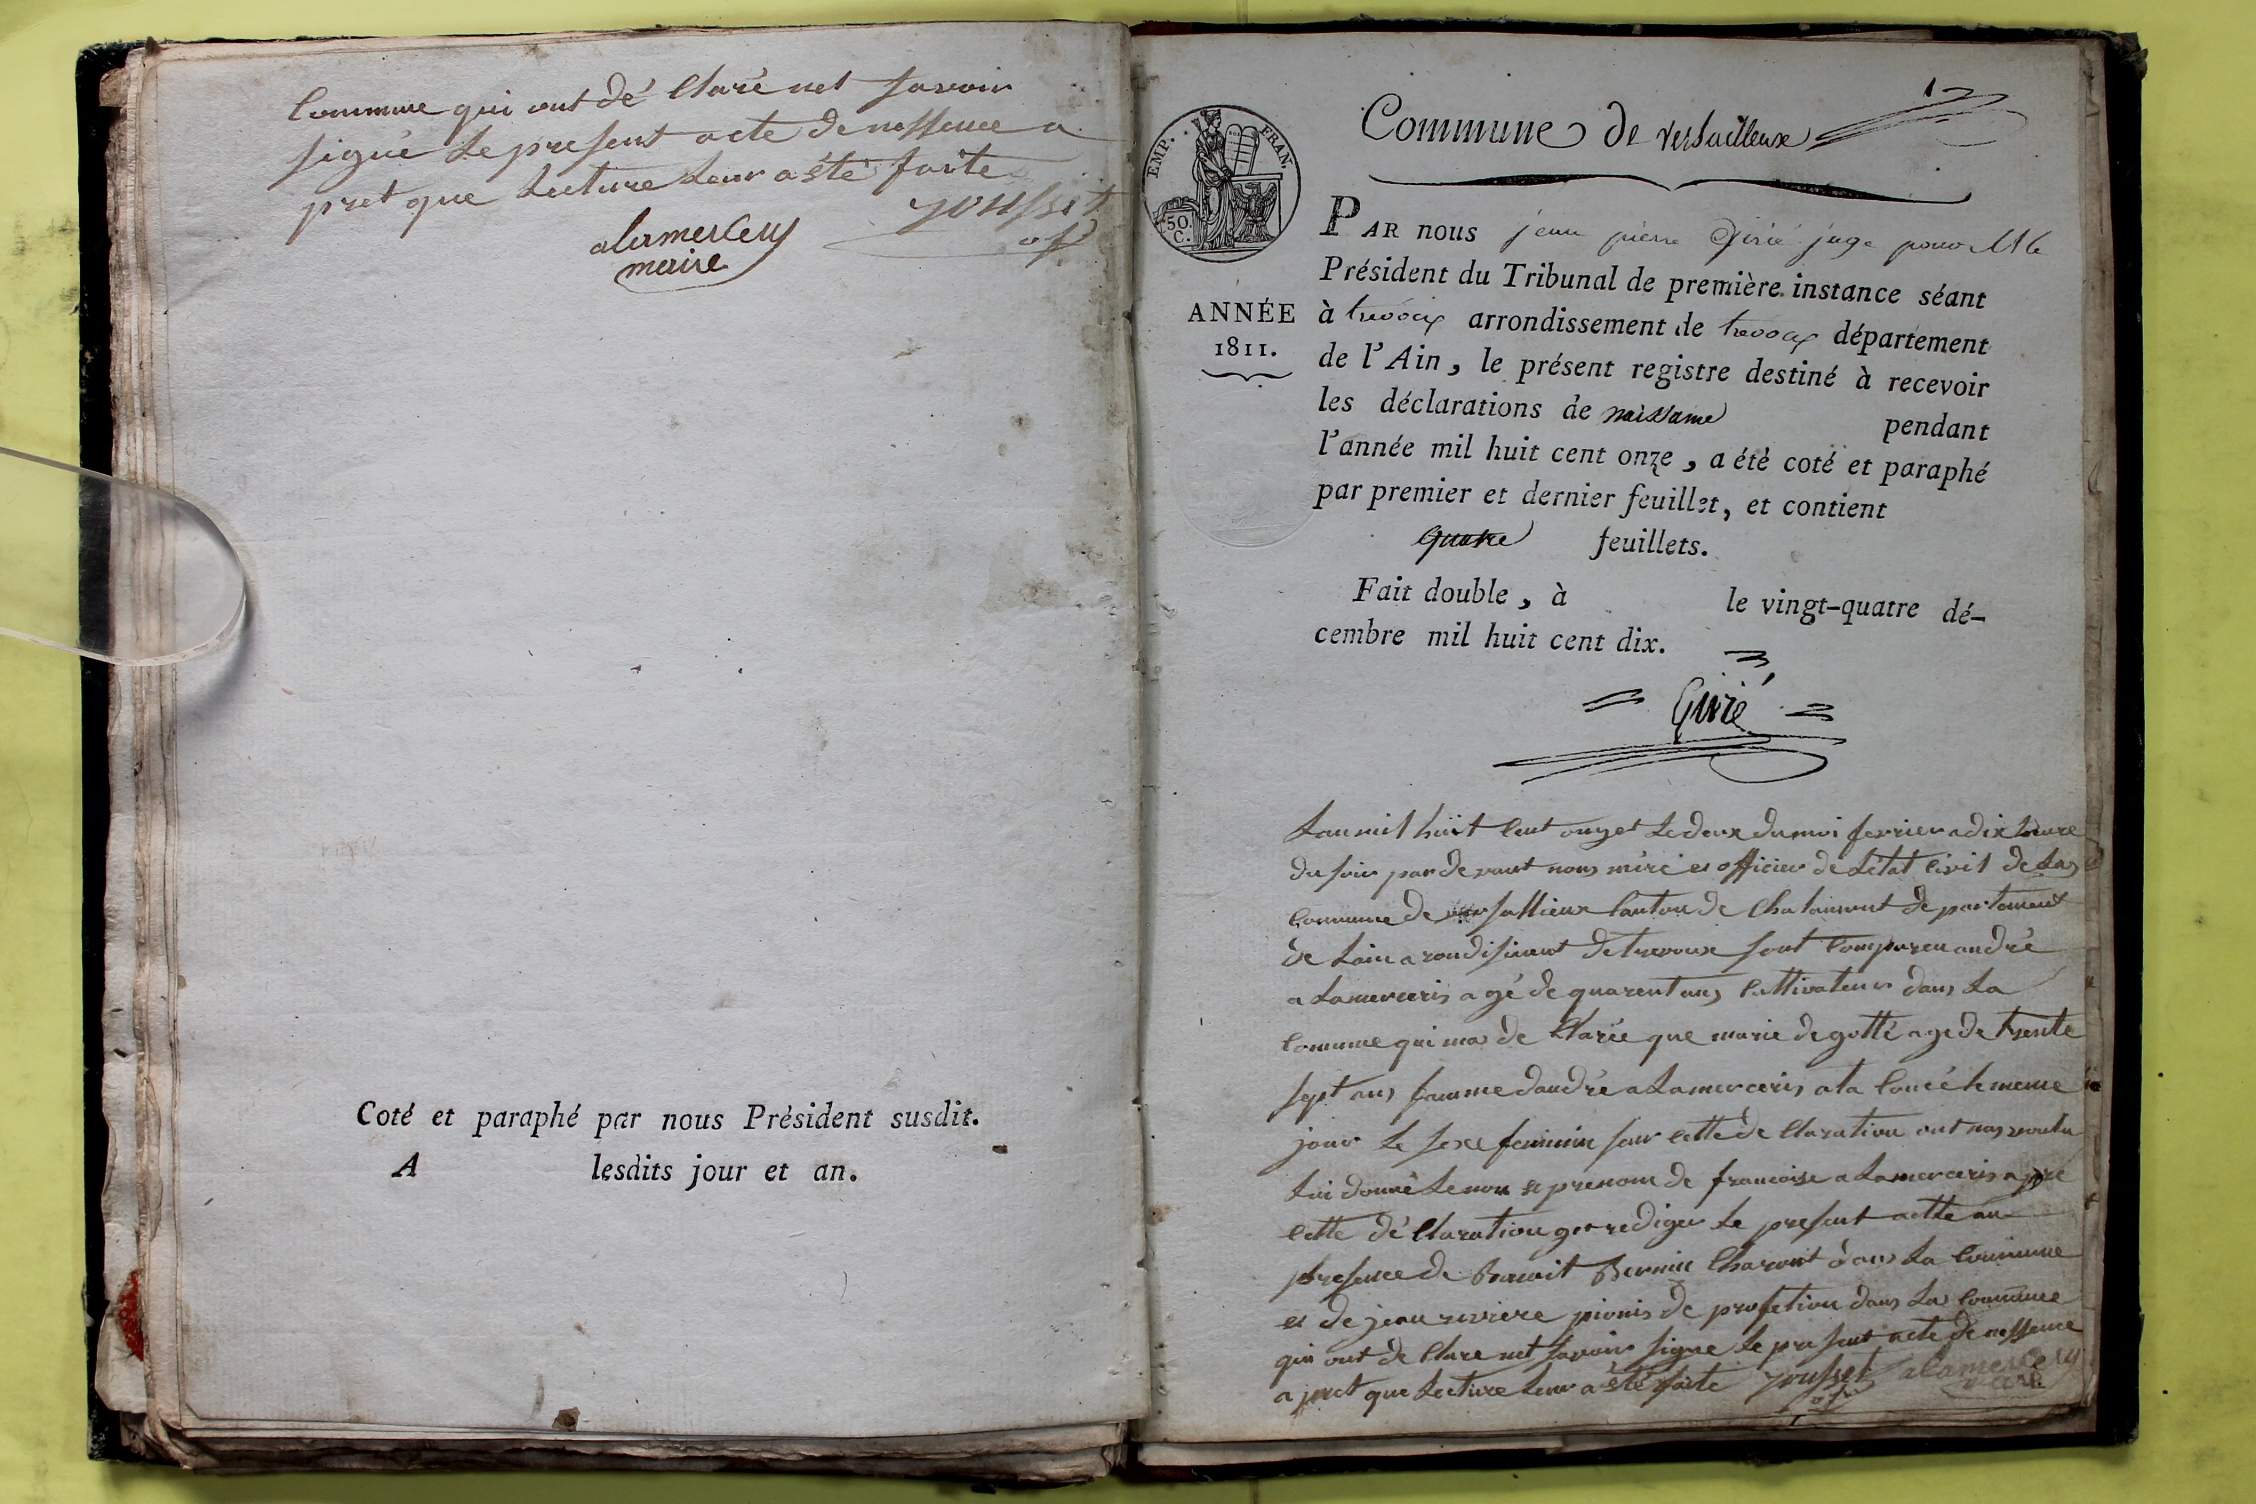 Commune qui ont dé Claré net Savoir
signé Le present acte de nessence a
pret que Lecture Leur a été faite
alamercery
maire
Coté et paraphé par nous Président susdit.
A lesdits jour et an.
1
Commune de versailleux
EMP. FRAN.
50 C.
ANNÉE
1811.
PAR nous jean pierre Girié juge pour Mr le
Président du Tribunal de première instance séant
à trevoux arrondissement de trevoux département
de l'Ain, le présent registre destiné à recevoir
les déclarations de naissance pendant
l'année mil huit cent onze, a été coté et paraphé
par premier et dernier feuillet, et contient
quatre feuillets.
Fait double, à le vingt-quatre dé-
cembre mil huit cent dix.
Girié
Lan mil huit Cent onzet Le deux du moi fevrier a dix heure
du soir par devant nous officier de Létat Civil de La
Commune de versallieux Canton de Chalamont departement
de Lain arondisement de trevoux sont Compareu andré
a Lamerceris agé de quarent ans Cultivateur dans La
Commune qui ma de Clarée que marie de gotté age de trente
sept ans famme dandré a Lamerceris a la Coucé le meme
jour Le sexe feminin sur cette dé Claration ont nas voulu
Lui donné Le non e prenom de francoise a Lamerceris a pré
Cette dé Claration get rediger Le present actte an
presence de Benoit Bernin Charont dans La Commune
et de jean riviere pionis de profetion dans La Commune
qui ont de Clare net Savoir signe Le present acte de nessence
a pret que Lecture Leur a été faite alamercery